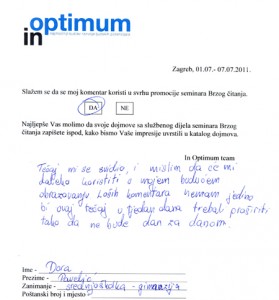 in optimum
Zagreb, 01.07.- 07.07.2011.
Slažem se da se moj komentar koristi u svrhu promocije seminara Brzog čitanja.
DA NE
Najljepše Vas molimo da svoje dojmove sa službenog dijela seminara Brzog
čitanja zapišete ispod, kako bismo Vaše impresije uvrstili u katalog dojmova.
In Optimum team
Tečaj mi se svidio, i mislim da će mi
daleko koristiti u mojem budućem
obrazovanju. Loših komentara nemam jedino
bi ovaj tečaj u tjedan dana trebali proširiti
tako da ne bude dan za danom.
Ime - Dora
Prezime - Pavelić
Zanimanje - srednjoškolka - gimnazija
Poštanski broj i mjesto